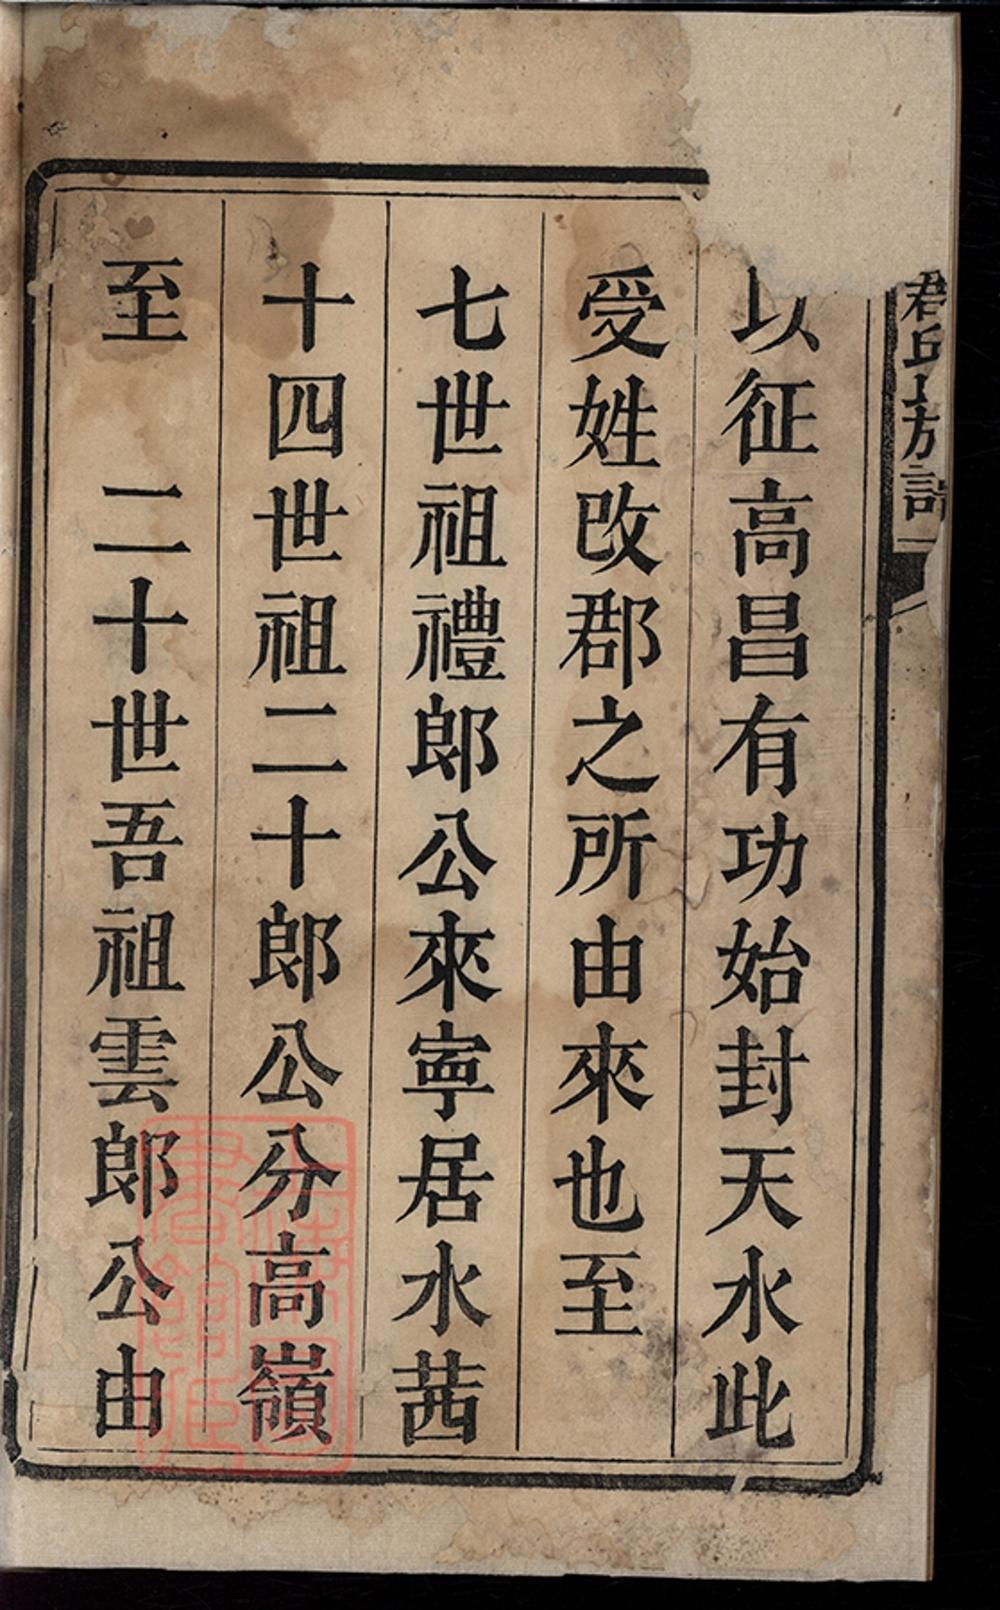 以征高昌有功始封天水此
受姓改郡之所由來也至
七世祖禮郎公來寧居水茜
十四世祖二十郎公分高嶺
至 二十世吾祖雲郎公由